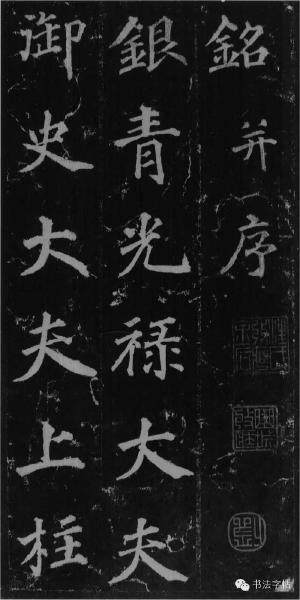 銘并序
銀青光祿大夫
御史大夫上柱
书法字帖